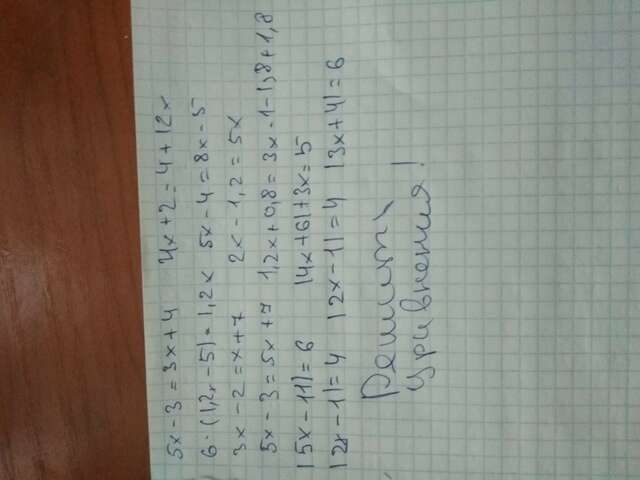 5x - 3 = 3x + 4 4x + 2 = 4 + 12x
6 · (1,2x - 5) = 1,2x 5x - 4 = 8x - 5
3x - 2 = x + 7 2x - 1,2 = 5x
5x - 3 = 5x + 7 1,2x + 0,8 = 3x - 1 - 1,8 + 1,8
|5x - 11| = 6 |4x + 6| + 3x = 5
|2x - 1| = 4 |2x - 1| = 4 |3x + 4| = 6
Решить
уравнения!